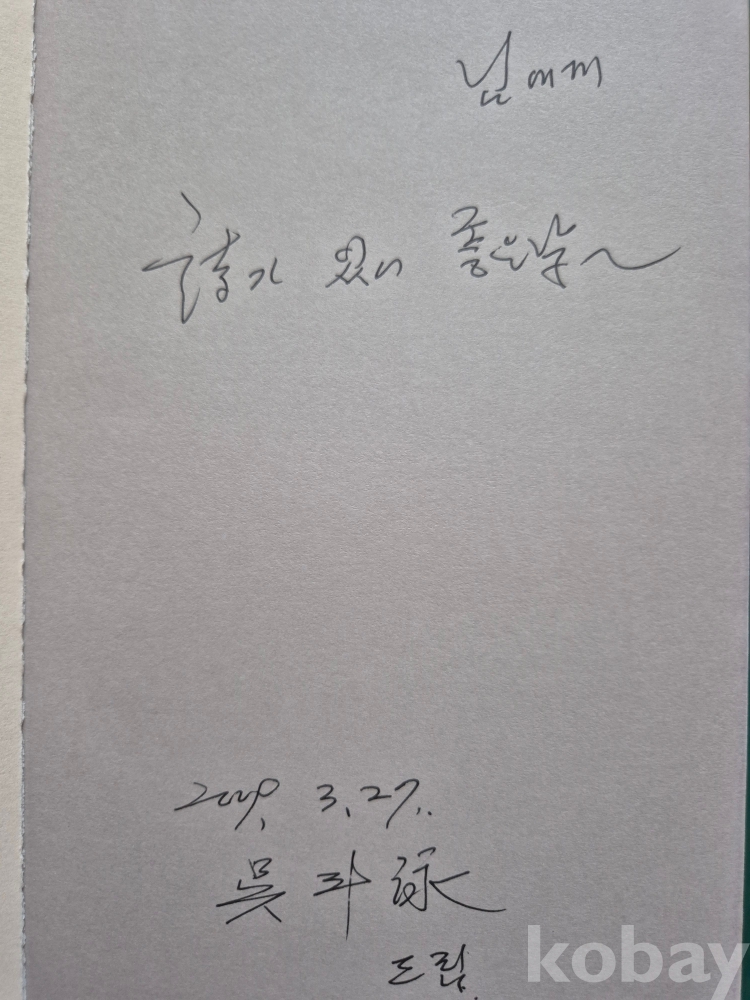 님에게
詩가 있어 좋은 날~
2009. 3. 27.
吳 詠
드림
kobay